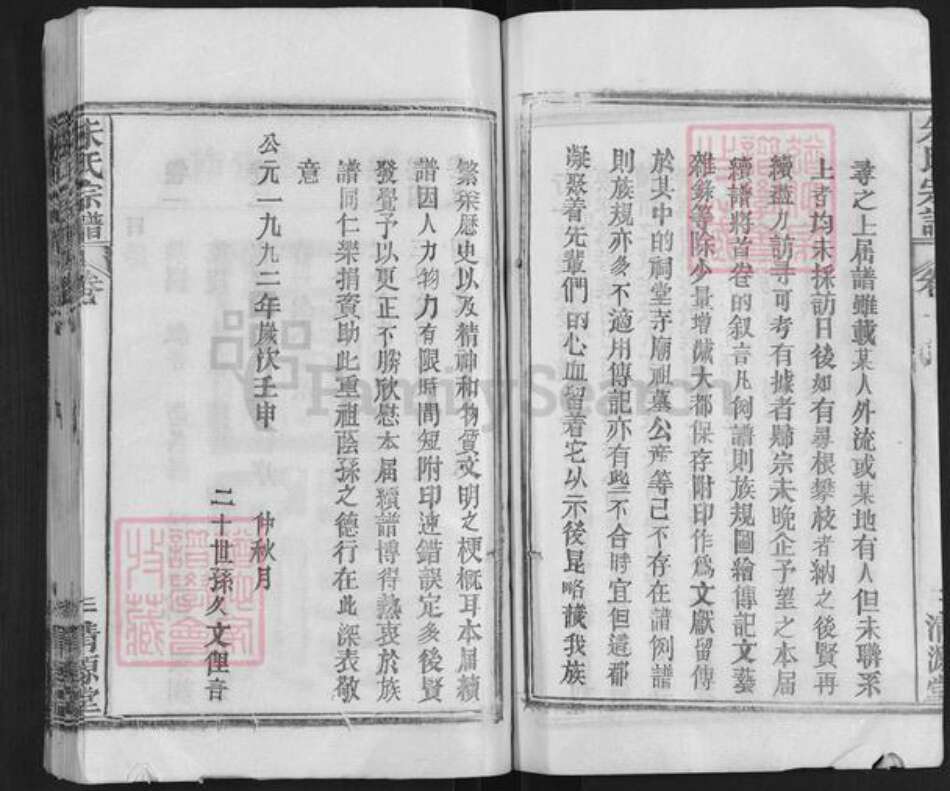 尋之上屆譜雖載某人外流或某地有人但未聯系
上者均未採訪日後如有尋根攀枝者納之後賢再
續盡力訪寻可考有據者歸宗未晚企予望之本屆
續譜將首卷的叙言凡例譜則族規圖繪傳記文藝
雜錄等除少量增減大都保存附印作爲文獻留傳
於其中的祠堂寺廟祖墓公产等己不存在譜例譜
則族規亦多不適用傳記亦有些不合時宜但這都
凝聚着先輩們的心血留着它以示後昆略識我族
繁榮歷史以及精神和物質文明之梗概耳本屆續
譜因人力物力有限時間短附印速錯誤定多後賢
發覺予以更正不勝欣慰本屆續譜博得熱衷於族
譜同仁樂捐資助此重祖蔭孫之德行在此深表敬
意
公元一九九二年歲次壬申 仲秋月
二十世孫久文俚言
朱氏宗譜
卷
三
清源堂
FamilySearch